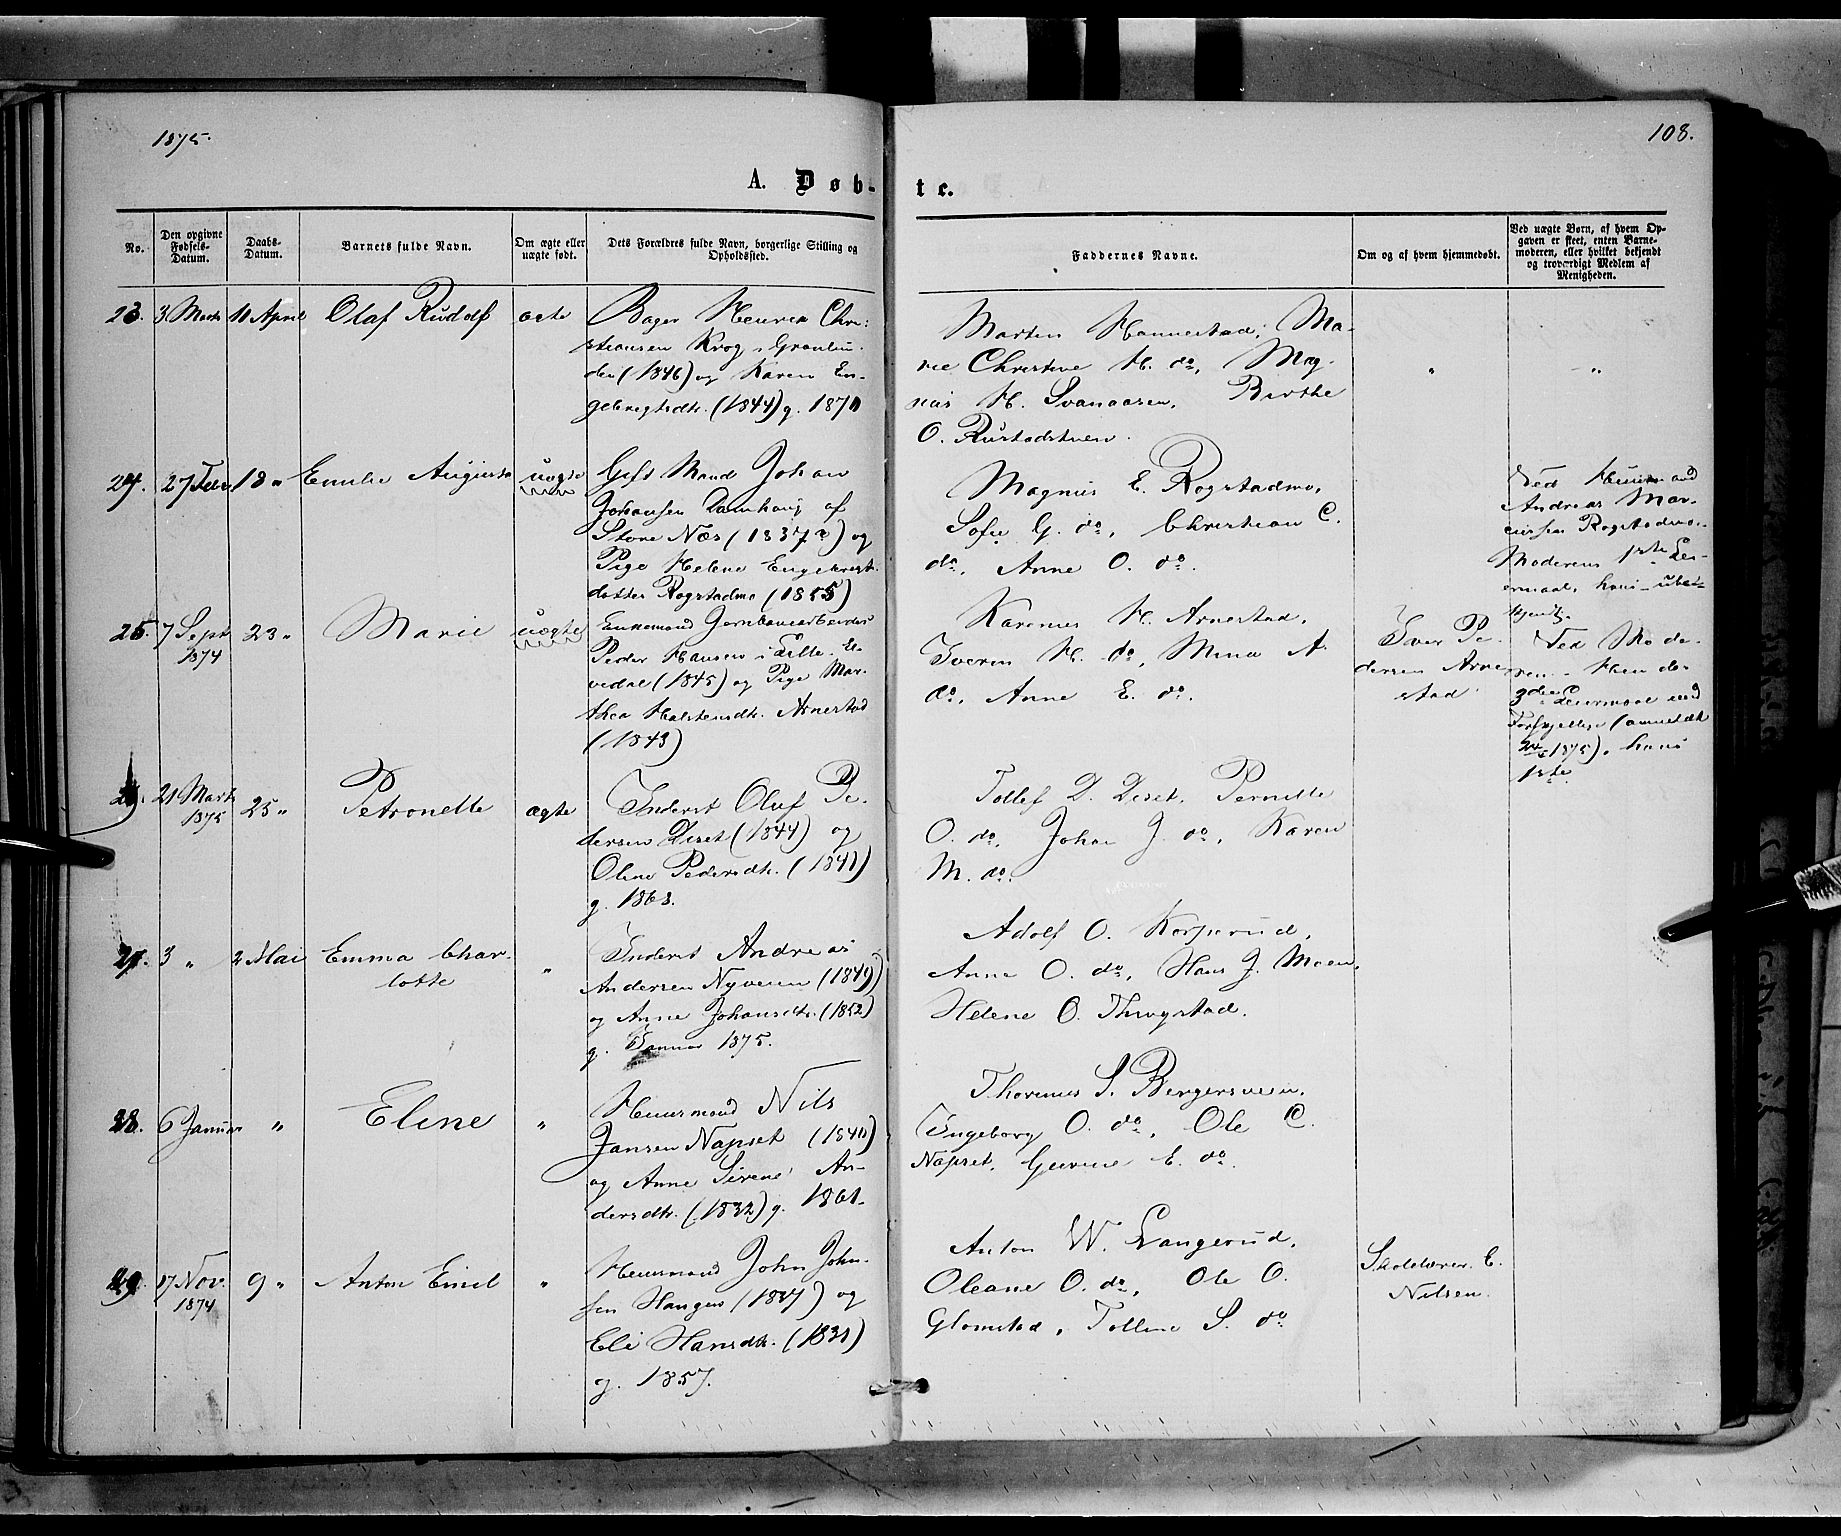 1875.
108.
A. Døb-
te.
No.
Den opgivne Fødsels-Datum.
Daabs-Datum.
Barnets fulde Navn.
Om ægte eller uægte født.
Dets Forældres fulde Navn, borgerlige Stilling og Opholdssted.
Faddernes Navne.
Om og af hvem hjemmedøbt.
Ved uægte Børn, af hvem Op-
gaven er skeet, enten Barne-
moderen, eller hvilket bekjendt
og troværdigt Medlem af
Menigheden.
23. 3 Marts 11 April Olaf Rudolf ægte
Bager Henrik Chri-
stiansen Krog i Grønlien-
den (1846) og Karen En-
gebregtsdtr. (1844) g. 1870
Martin Hannestad, Ma-
rie Christine H. do, Mag-
nus H. Svanaasen, Birthe
O. Rustadstuen.
" "
24. 27 Febr 18 " Emilie Augusta uægte
Gift Mand Johan
Johansen Damhaug af
Store Næs (1837?) og
Pige Helene Engebrets-
datter Rogstadmo (1855)
Magnus E. Rogstadmo,
Sofie G. do, Christian C.
do, Anne O. do.
Ved Huusmand
Andreas Mar-
Rogstadmo.
Moderens 1ste Lei-
ermaal, hans ube-
kjendt.
25. 7 Sept 1874 23 " Marie uægte
Enkemand Jernbanearbeider
Peder Hansen i Lille El-
vedal (1845) og Pige Mar-
thea Halstensdtr. Arnestad
(1843)
Karenus H. Arnestad,
Iverin H. do, Mina A.
do, Anne E. do.
Iver Pe-
dersen Arne-
stad
Ved Mode-
ren. Hendes
3die Leiermaal med
(anmeldt
1875), hans
1ste
26. 21 Marts 1875 25 " Petronelle ægte
Inderst Oluf Pe-
dersen Diset (1844) og
Oline Pedersdtr. (1841)
g. 1868.
Tollef D. Diset, Pernille
O. do, Johan J. do, Karen
M. do.
27. 3 " 2 Mai Emma Char-
lotte "
Inderst Andreas
Andersen Nyveien (1849)
og Anne Johansdtr. (1852)
g. Januar 1875.
Adolf O. Korperud,
Anne O. do, Hans J. Moen,
Helene O. Thingstad.
28. 6 Januar " Eline "
Huusmand Nils
Jansen Napset (1840)
og Anne Sirene An-
dersdtr. (1832) g. 1861.
Thorinus S. Bergersveen,
Ingeborg O. do, Ole C.
Napset, Gurine E. do.
29. 17 Nov. 1874 9 " Anton Emil "
Huusmand John John-
sen Haugen (1827) og
Eli Hansdtr. (1831)
g. 1857.
Anton W. Langerud,
Oleane O. do, Ole O.
Glomstad, Tolline S. do
Skolelærer E.
Nilsen.